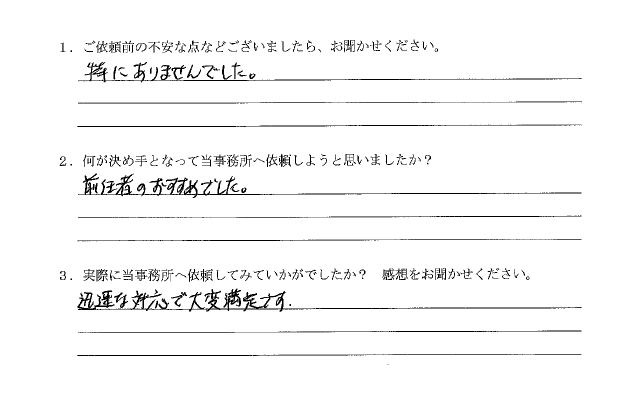 1．ご依頼前の不安な点などございましたら、お聞かせください。
特にありませんでした。
2．何が決め手となって当事務所へ依頼しようと思いましたか？
前任者のおすすめでした。
3．実際に当事務所へ依頼してみていかがでしたか？　感想をお聞かせください。
迅速な対応で大変満足です.